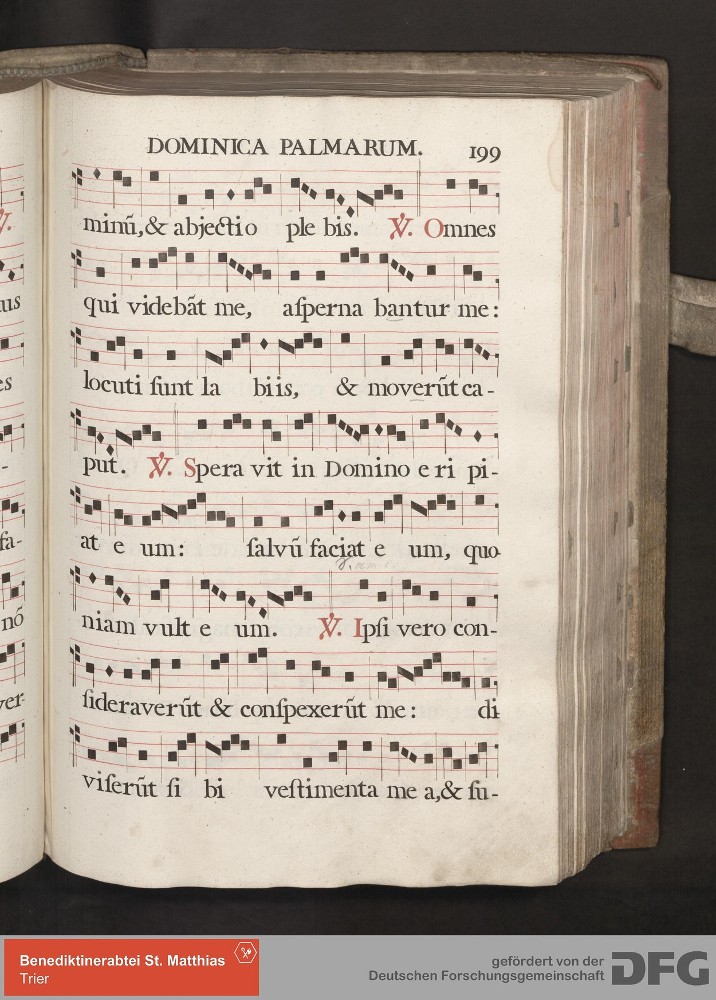 DOMINICA PALMARUM. 199
minũ, & abjectio ple bis. ℣. Omnes
qui videbãt me, aſperna bantur me:
locuti ſunt la biis, & moverũt ca-
put. ℣. Spera vit in Domino e ri pi-
at e um: ſalvũ faciat e um, quo
niam vult e um. ℣. Ipſi vero con-
ſideraverũt & conſpexerũt me: di
viſerũt ſi bi veſtimenta me a, & ſu-
us
es
-
fa-
nõ
ver-
Benediktinerabtei St. Matthias
Trier
gefördert von der
Deutschen Forschungsgemeinschaft DFG